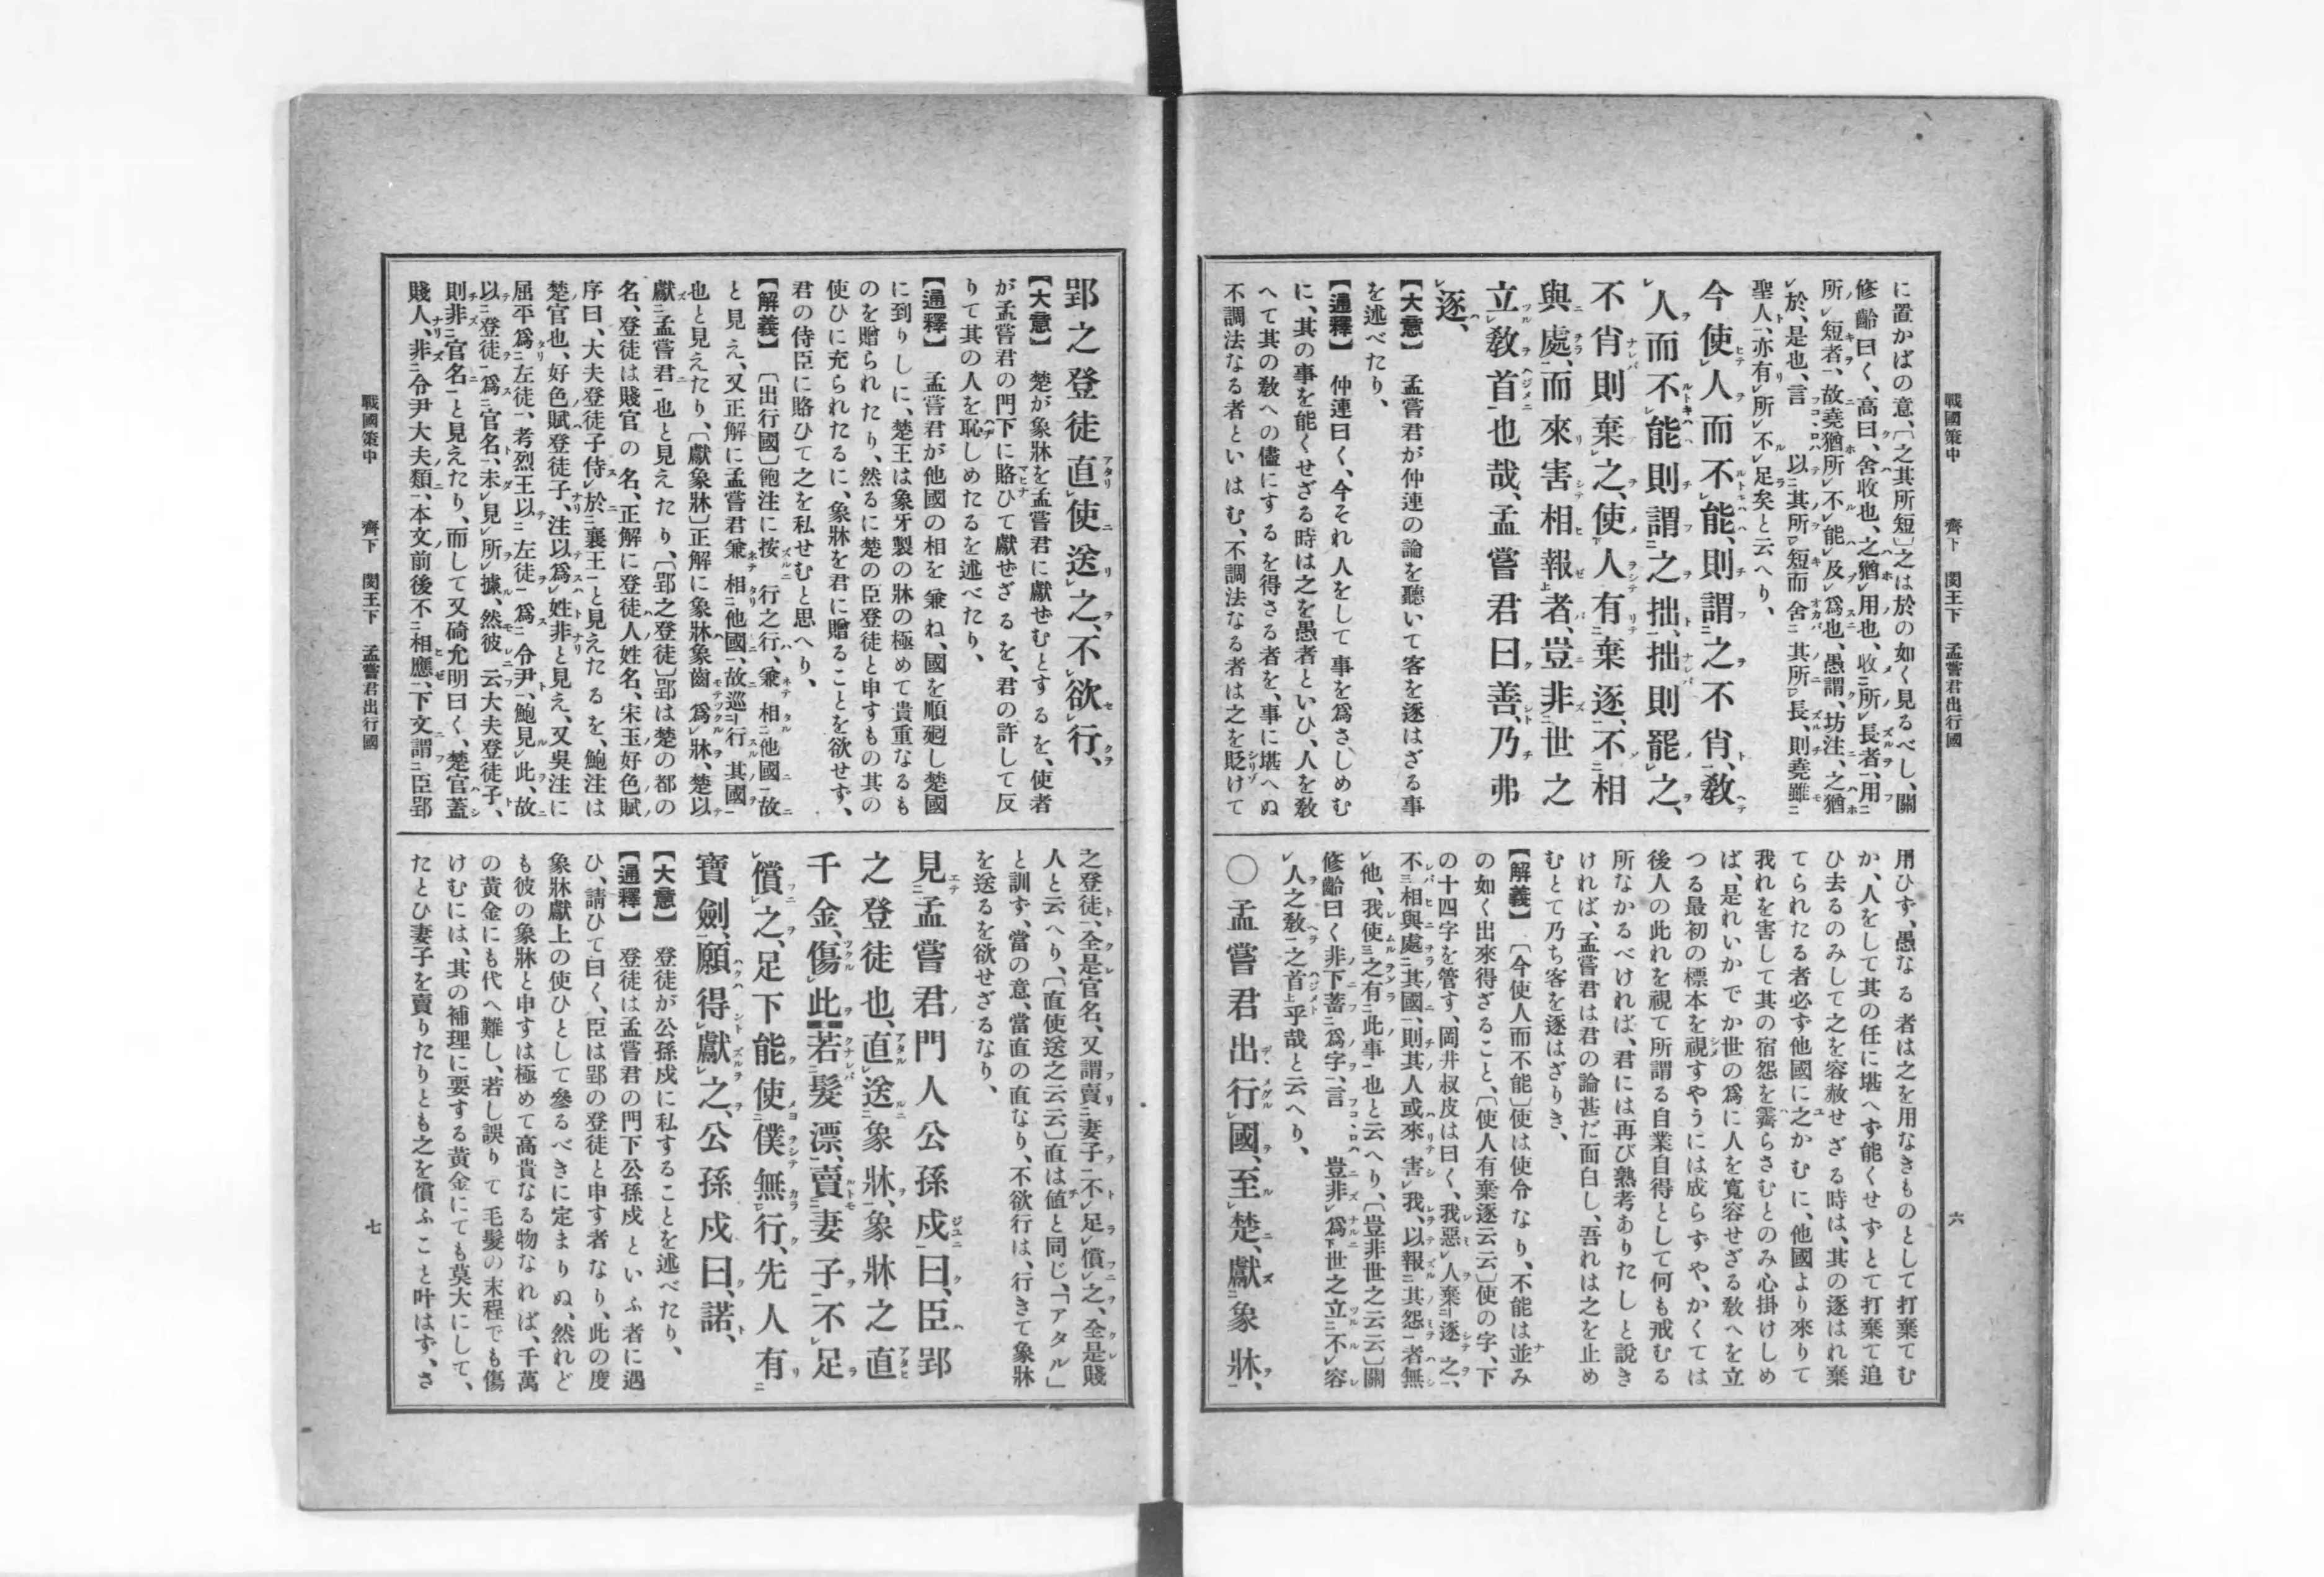 戰國策中　　齊下　閔王下　孟嘗君出行國　　六
に置かばの意、〔之其所短〕之は於の如く見るべし、關
修齡曰く、高曰、舍收也、之猶用也、收所長者、用
所短者、故堯猶所不能及爲也、愚謂、坊注、之猶
於、是也、言　以其所短而舍其所長、則堯雖
聖人、亦有所不足矣と云へり、
今使人而不能、則謂之不肖、敎
人而不能則謂之拙、拙則罷之、
不肖則棄之、使人有棄逐、不相
與處、而來害相報者、豈非世之
立敎首也哉、孟嘗君曰善、乃弗
逐、
【大意】　孟嘗君が仲連の論を聽いて客を逐はざる事
を述べたり、
【通釋】　仲連曰く、今それ人をして事を爲さしめむ
に、其の事を能くせざる時は之を愚者といひ、人を敎
へて其の敎への儘にするを得さる者を、事に堪へぬ
不調法なる者といはむ、不調法なる者は之を貶けて
用ひず、愚なる者は之を用なきものとして打棄てむ
か、人をして其の任に堪へず能くせずとて打棄て追
ひ去るのみして之を容赦せざる時は、其の逐はれ棄
てられたる者必ず他國に之かむに、他國より來りて
我れを害して其の宿怨を霽らさむとのみ心掛けしめ
ば、是れいかでか世の爲に人を寬容せざる敎へを立
つる最初の標本を視すやうには成らずや、かくては
後人の此れを視て所謂る自業自得として何も戒むる
所なかるべければ、君には再び熟考ありたしと說き
ければ、孟嘗君は君の論甚だ面白し、吾れは之を止め
むとて乃ち客を逐はざりき、
【解義】　〔今使人而不能〕使は使令なり、不能は並み
の如く出來得ざること、〔使人有棄逐云云〕使の字、下
の十四字を管す、岡井叔皮は曰く、我惡人棄逐之、
不相與處其國、則其人或來害我、以報其怨者無
他、我使之有此事也と云へり、〔豈非世之云云〕關
修齡曰く非下蓄爲字、言　豈非爲世之立不容
人之敎之首乎哉と云へり、
〇孟嘗君出行國、至楚、獻象牀、
郢之登徒直使送之、不欲行、
【大意】　楚が象牀を孟嘗君に獻せむとするを、使者
が孟嘗君の門下に賂ひて獻せざるを、君の許して反
りて其の人を恥しめたるを述べたり、
【通釋】　孟嘗君が他國の相を兼ね、國を順廻し楚國
に到りしに、楚王は象牙製の牀の極めて貴重なるも
のを贈られたり、然るに楚の臣登徒と申すもの其の
使ひに充られたるに、象牀を君に贈ることを欲せず、
君の侍臣に賂ひて之を私せむと思へり、
【解義】　〔出行國〕鮑注に按　行之行、兼相他國故
と見え、又正解に孟嘗君兼相他國、故巡行其國
也と見えたり、〔獻象牀〕正解に象牀象齒爲牀、楚以
獻孟嘗君也と見えたり、〔郢之登徒〕郢は楚の都の
名、登徒は賤官の名、正解に登徒人姓名、宋玉好色賦
序曰、大夫登徒子侍於襄王と見えたるを、鮑注は
楚官也、好色賦登徒子、注以爲姓非と見え、又吳注に
屈平爲左徒、考烈王以左徒爲令尹、鮑見此、故
以登徒爲官名、未見所據、然彼云大夫登徒子、
則非官名と見えたり、而して又碕允明曰く、楚官蓋
賤人、非令尹大夫類、本文前後不相應、下文謂臣郢
之登徒、全是官名、又謂賣妻子不足償之、全是賤
人と云へり、〔直使送之云云〕直は値と同じ、「アタル」
と訓ず、當の意、當直の直なり、不欲行は、行きて象牀
を送るを欲せざるなり、
見孟嘗君門人公孫戍曰、臣郢
之登徒也、直送象牀、象牀之直
千金、傷此若髮漂、賣妻子不足
償之、足下能使僕無行、先人有
寶劍、願得獻之、公孫戍曰、諾、
【大意】　登徒が公孫戍に私することを述べたり、
【通釋】　登徒は孟嘗君の門下公孫戍といふ者に遇
ひ、請ひて曰く、臣は郢の登徒と申す者なり、此の度
象牀獻上の使ひとして參るべきに定まりぬ、然れど
も彼の象牀と申すは極めて高貴なる物なれば、千萬
の黃金にも代へ難し、若し誤りて毛髮の末程でも傷
けむには、其の補理に要する黃金にても莫大にして、
たとひ妻子を賣りたりとも之を償ふこと叶はず、さ
戰國策中　　齊下　閔王下　孟嘗君出行國　　七